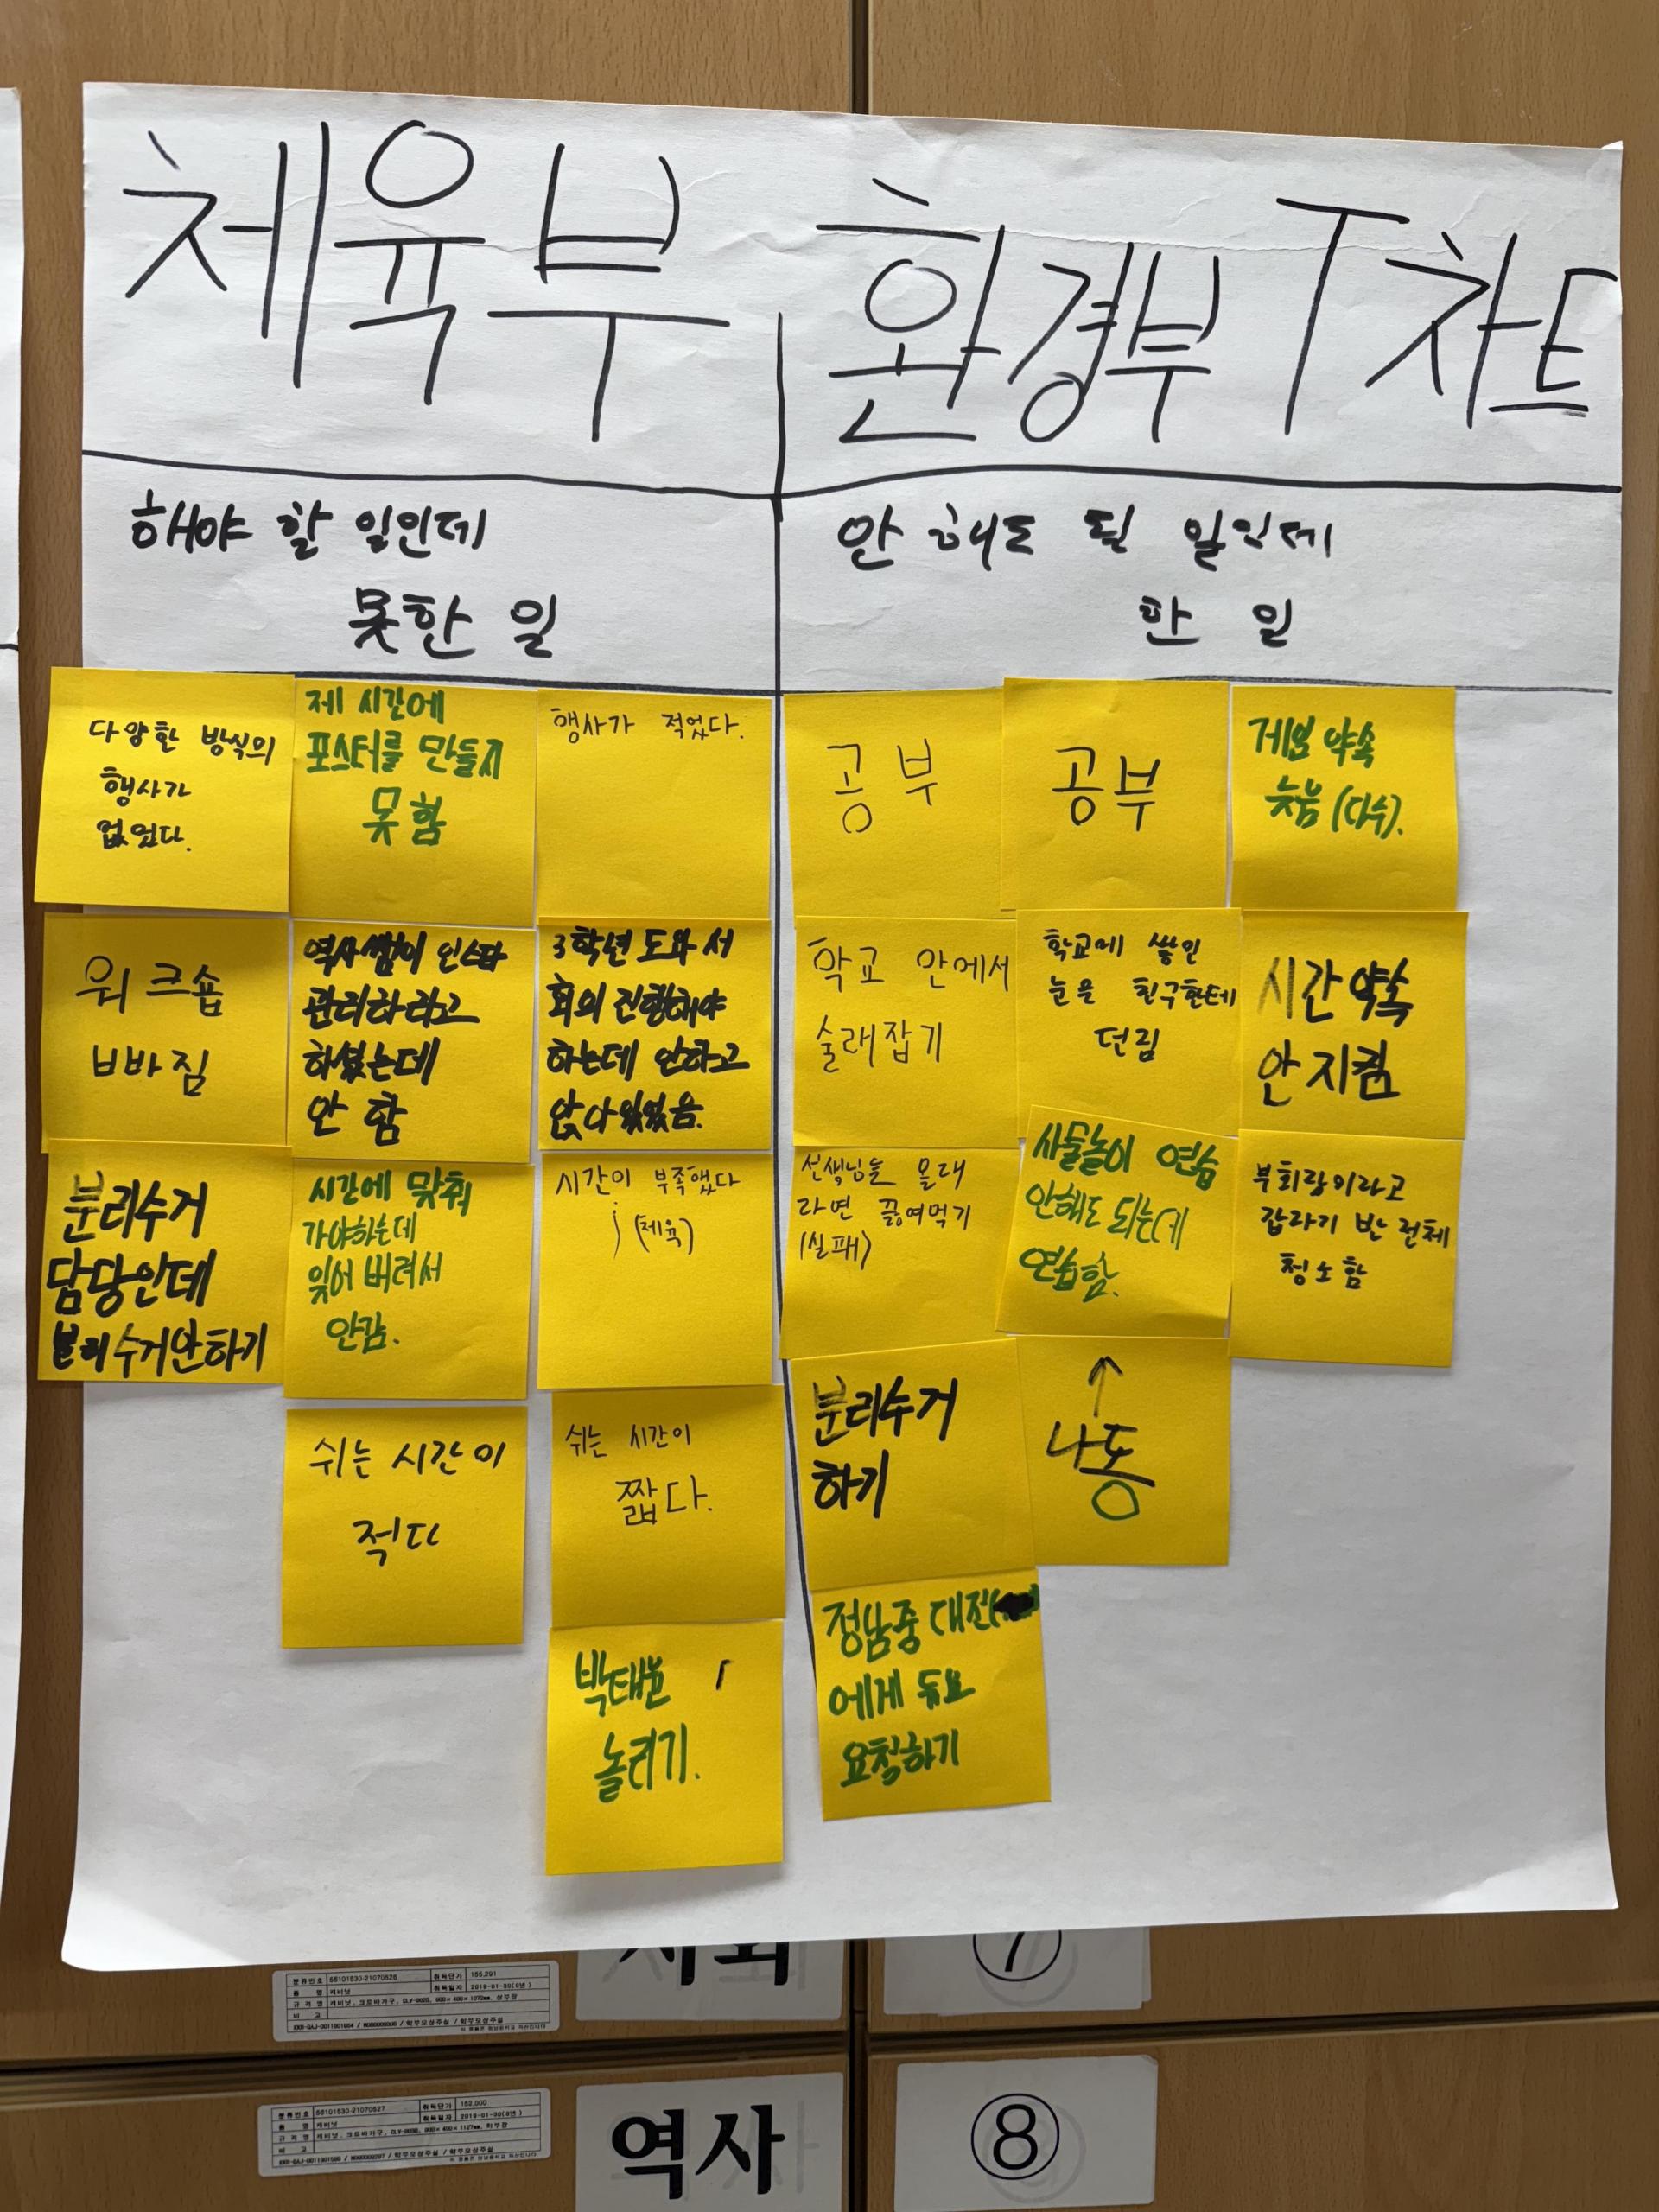 체육부 환경부 T 차트
해야 할 일인데
못한 일
다양한 방식의
행사가
없었다.
제 시간에
포스터를 만들지
못함
행사가 적었다.
워크숍
빠짐
역사쌤이 인스타
관리하라고
하셨는데
안 함
3학년 도와서
회의 진행해야
하는데 안하고
앉아있었음.
분리수거
담당인데
분리수거안하기
시간에 맞춰
가야하는데
잊어버려서
안감.
시간이 부족했다
(체육)
쉬는 시간이
적다
쉬는 시간이
짧다.
박태윤
놀리기.
안 해도 될 일인데
한 일
공부
공부
게임 약속
늦음 (다수).
학교 안에서
술래잡기
학교에 쌓인
눈을 친구한테
던짐
시간 약속
안 지킴
선생님들 몰래
라면 끓여먹기
(실패)
사물놀이 연습
안해도 되는데
연습함.
부회장이라고
갑자기 반 전체
청소함
분리수거
하기
↑
나동
정남중 대전
에게
요청하기
사회
⑦
분류번호 56101530-21070526 취득단가 155,291
품 명 캐비닛 취득일자
규 격 명 캐비닛,
비 고
역사
⑧
분류번호 56101530-21070527 취득단가 152,000
품 명 캐비닛 취득일자
규 격 명 캐비닛,
비 고